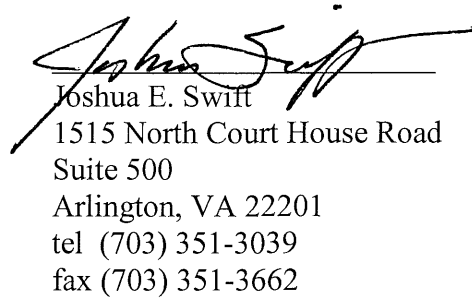 Joshua Swift
Joshua E. Swift
1515 North Court House Road
Suite 500
Arlington, VA 22201
tel (703) 351-3039
fax (703) 351-3662